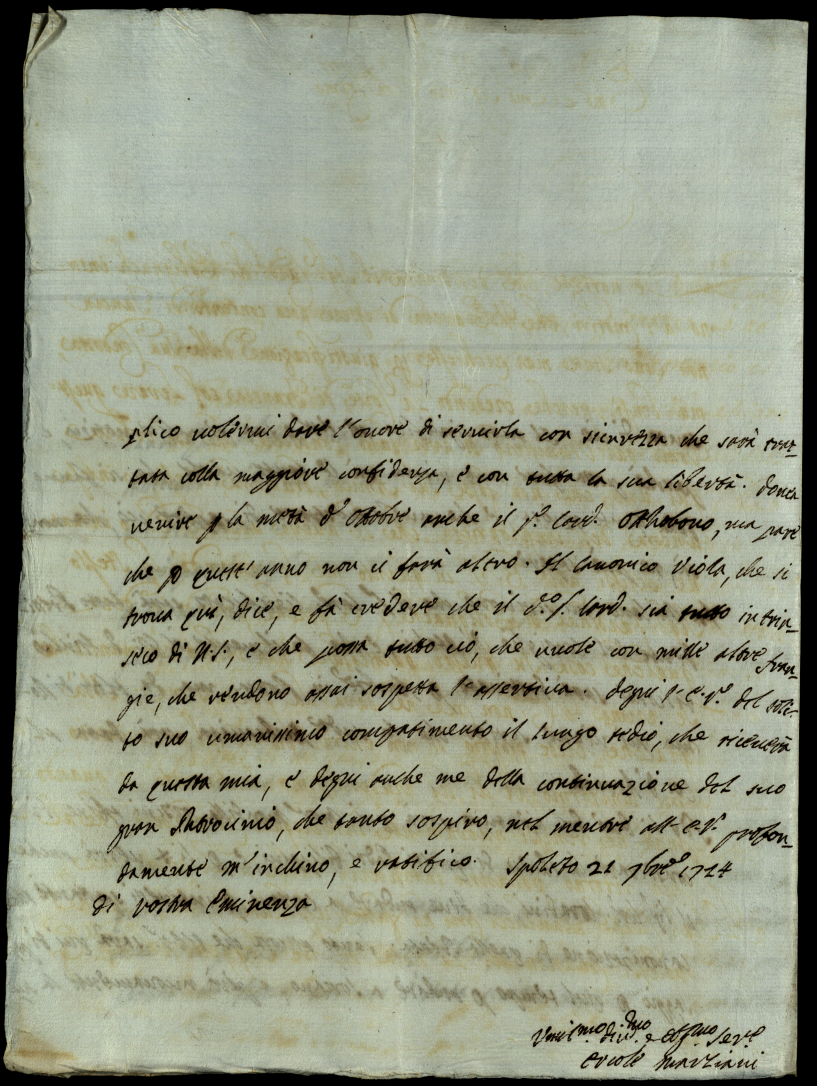 plico volermi dare l'onore di servirla con sicurezza che sarà trat-
tata colla maggiore confidenza, e con tutta la sua libertà. Dovea
venire p la metà d'Ottobre anche il s.r Card. Otthobono, ma pare
che p quest'anno non ci farà altro. Il Canonico Viola, che si
trova quà, dice, e fà credere che il d.o s. Card. sia tutto intrin-
seco di N.S., e che possa tutto ciò, che vuole con mille altre fran-
gie, che rendono assai sospetta l'assertiva. Degni l'E.V. del soli-
to suo umanissimo compatimento il lungo tedio, che riceverà
da questa mia, e degni anche me della continuazione del suo
gran Patrocinio, che tanto sospiro, nel mentre all'E.V. profon-
damente m'inchino, e ratifico. Spoleto 21 7bre 1724
di Vostra Eminenza
Umil.mo div.mo e obl.mo ser.e
Ercole Marziani